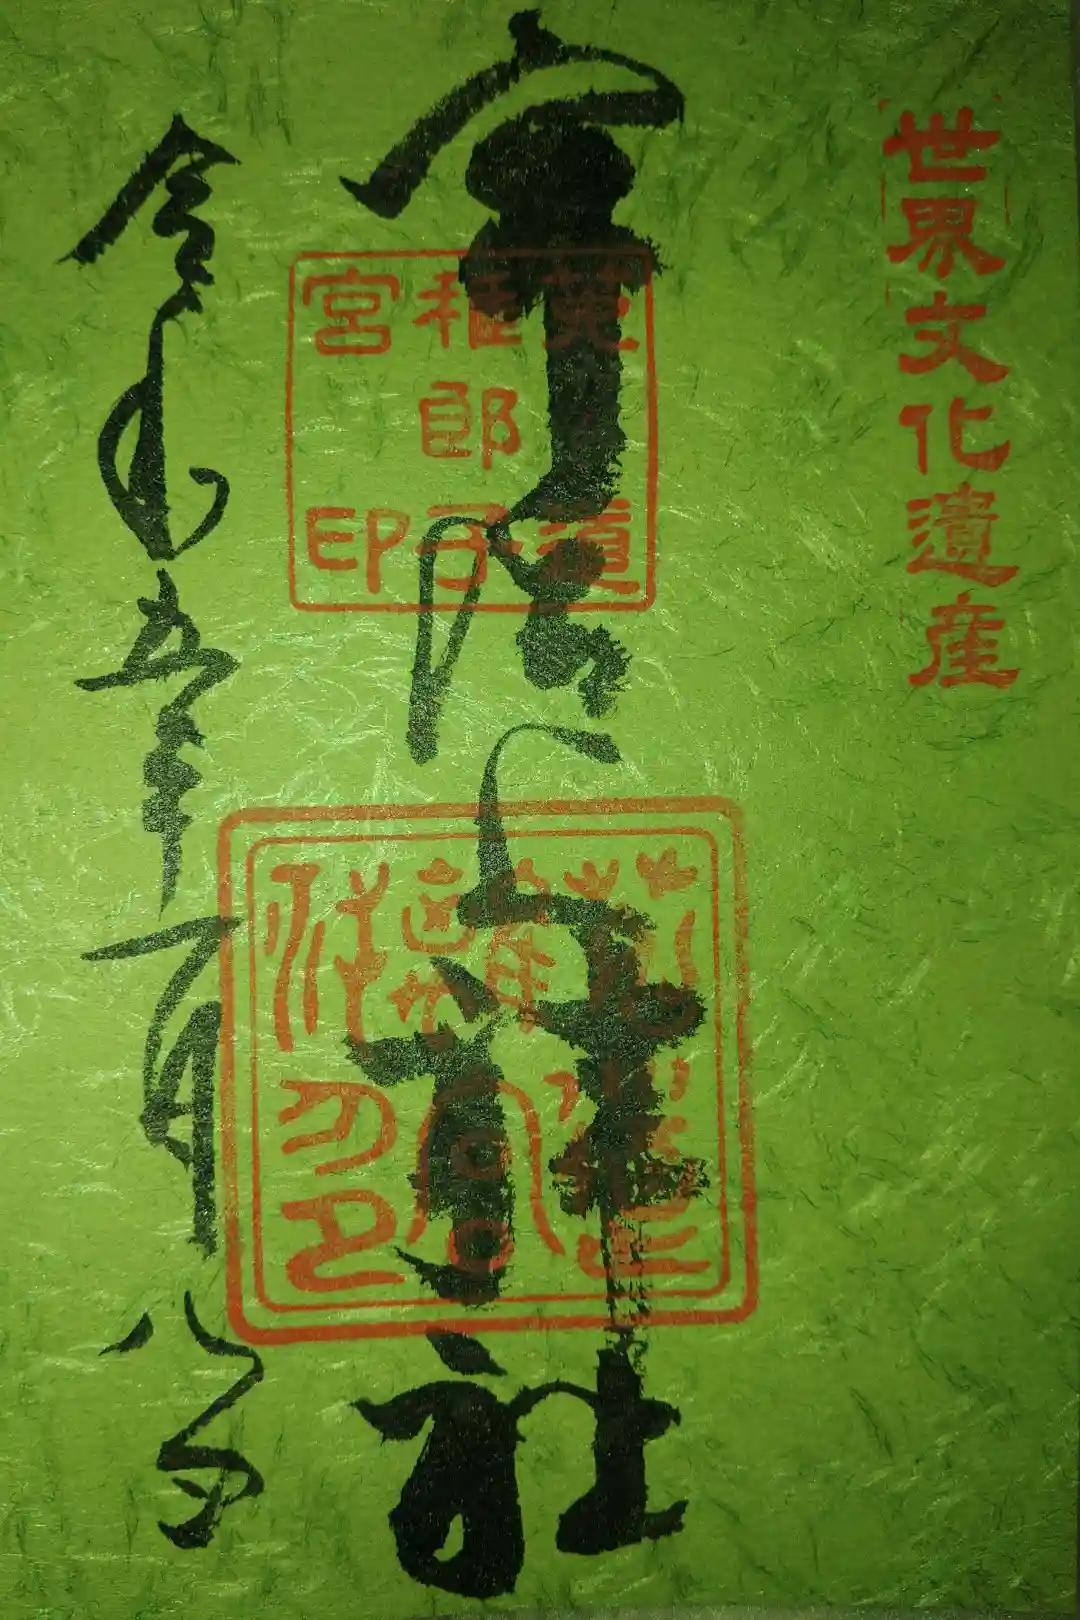 世界文化遺産
宇治上神社
菟道
稚郎子
宮印
令和五年一月八日